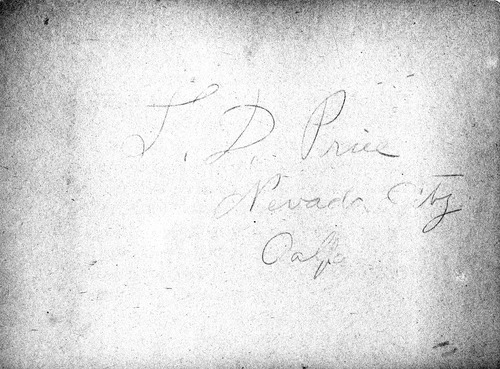 T. D. Price
Nevada City
Calfa